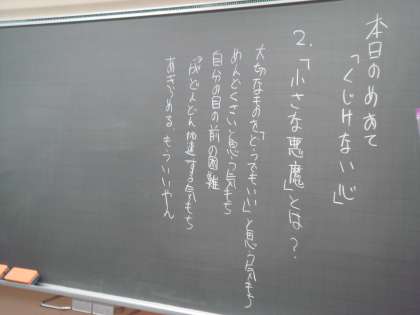 本日のめあて
「くじけない心」
2.「小さな悪魔」とは?
大切なものを「どうでもいい」と思う気もち
めんどくさいと思う気もち
自分の目の前の困難
どんどん加速する気もち
あきらめる、もういいやん